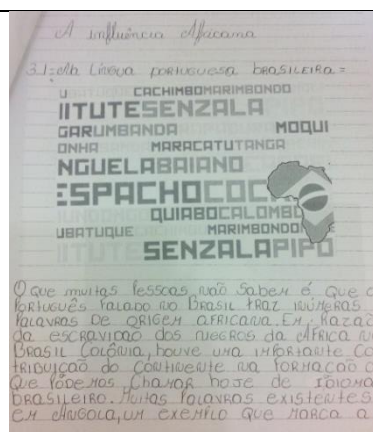 A influência Africana
3.1: Na Língua portuguesa brasileira =
U CACHIMBOMARIMBONDO
IITUTESENZALA
GARUMBANDA MOQUI
ONHA MARACATUTANGA
NGUELABAIANO
ESPACHOCOC
QUIABOCALOMBO
UBATUQUE MARIMBONDO
SENZALAPIPO
O que muitas pessoas não sabem é que o
Português falado no Brasil traz inúmeras
Palavras de origem africana. Em Razão
da escravidão dos negros da África no
Brasil Colônia, houve uma importante co
tribuição do continente na formação d
que podemos chamar hoje de idioma
brasileiro. Muitas palavras existentes
em Angola, um exemplo que marca a